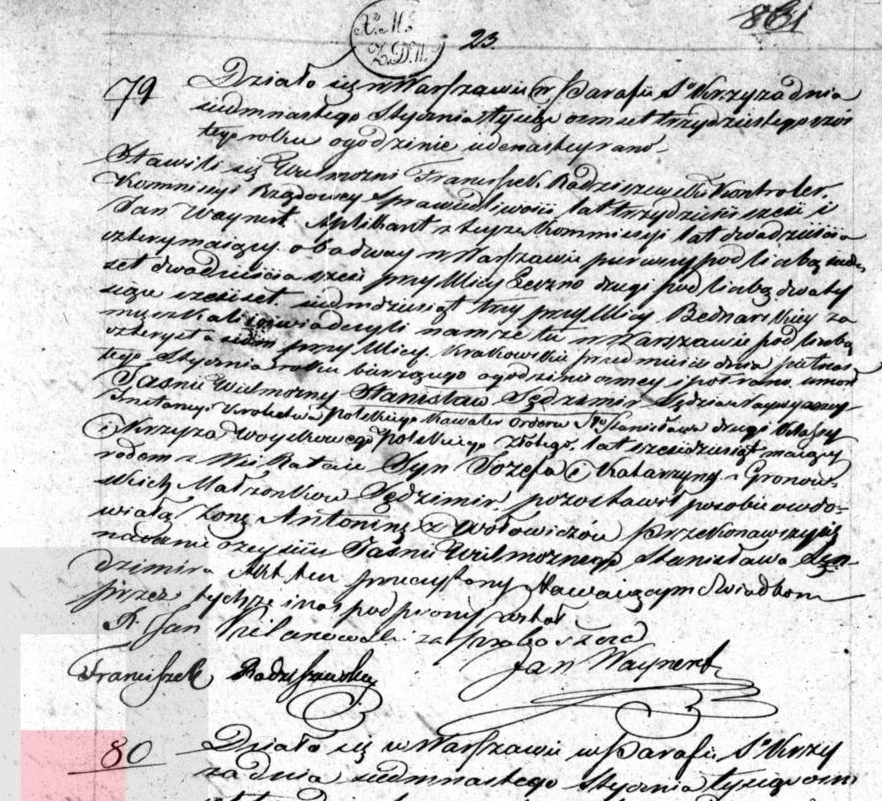 X. M. S.
Z. D. N.
23.
831
79
Działo się w Warszawie w Parafii Sgo Krzyża dnia
siedmnastego Stycznia tysiąc ośmset trzydziestego
tego roku o godzinie iedenastey rano
Stawili się Wielmożni Franciszek Radziszewski Kontroler
Kommissyi Rządowey Sprawiedliwości lat trzydzieści sześć i
Jan Waynert Aplikant z teyże Kommissyi lat dwadzieścia
cztery maiący, obadway w Warszawie pierwszy pod liczbą
set dwadzieścia sześć przy Ulicy Leszno drugi pod liczbą dwa ty
siące sześćset siedmdziesiąt trzy przy Ulicy Bednarskiey za
mieszkali i oświadczyli nam że tu w Warszawie pod liczbą
czterysta siedm przy Ulicy Krakowskie przedmieście dnia piętnas
tego Stycznia roku bieżącego o godzinie osmey i pół rano umarł
Jaśnie Wielmożny Stanisław Sędzimir Sędzia Naywyższey
Instancyi Królestwa Polskiego Kawaler Orderu Sgo Stanisława drugiey Klassy
i Krzyża Woyskowego Polskiego Złotego, lat sześćdziesiąt maiący
rodem z Syn Józefa i Katarzyny z Gronow-
skich Małżonków Sędzimir, pozostawił po sobie owdo-
wiałą Żonę Antoninę z Wołowiczów Przekonawszy się
naocznie o zeyściu Jaśnie Wielmożnego Stanisława Sen-
dzimira Akt ten przeczytany stawaiącym Świadkom
przez tychże i nas podpisany został
X. Jan za Proboszcza
Franciszek Radziszewski Jan Waynert
80
Działo się w Warszawie w Parafii Sgo Krzy
ża dnia siedmnastego Stycznia tysiąc ośm